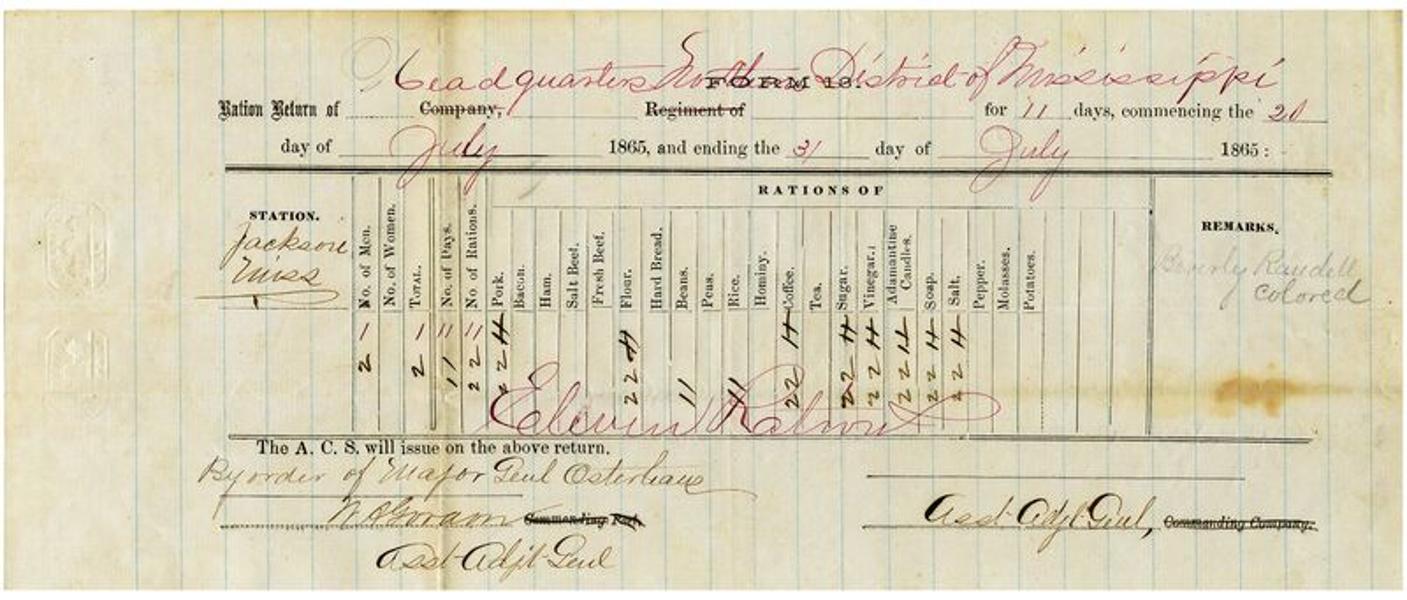 Headquarters Northern District of Mississippi
FORM 13.
Ration Return of Company, Regiment of for 11 days, commencing the 20
day of July 1865, and ending the 31 day of July 1865:
RATIONS OF
STATION. No. of Men. No. of Women. Total. No. of Days. No. of Rations. Pork. Bacon. Ham. Salt Beef. Fresh Beef. Flour. Hard Bread. Beans. Peas. Rice. Hominy. Coffee. Tea. Sugar. Vinegar. Adamantine Candles. Soap. Salt. Pepper. Molasses. Potatoes. REMARKS.
Jackson
Miss
Beverly Randell
colored
1 1 11 11
2 2 11 22 22 22 11 11 22 22 22 22 22 22
Eleven Rations
The A. C. S. will issue on the above return.
By order of Major Genl Osterhaus
Commanding Post.
Asst Adjt Genl, Commanding Company.
Asst Adjt Genl